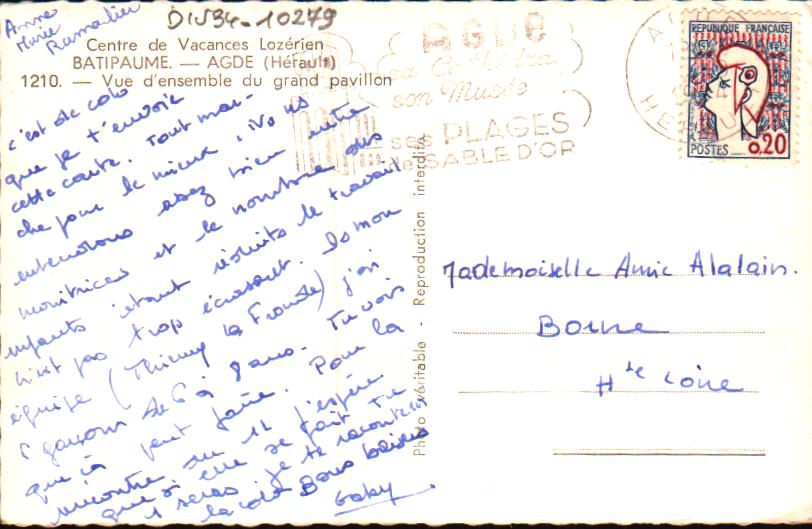 Anne
Marie
Ramatier
DIV34-10279
Centre de Vacances Lozérien
BATIPAUME. — AGDE (Hérault)
1210. — Vue d'ensemble du grand pavillon
c'est de colo
que je t'envoie
cette carte. Tout mar-
che pour le mieux, nous
entendons assez bien entre
monitrices et le nombre des
enfants étant réduits le travail
n'est pas trop écrasant. Ds mon
équipe (Thierry la Fronde) j'ai
garçons de 6 à 8 ans. Tu vois
que ça peut faire. Pour la
rencontre du 11 j'espère
que si elle se fait tu
y seras je te raconterai
la colo Bons baisers
Gaby
Photo véritable - Reproduction interdite
AGDE
sa Cathédrale
son Musée
ses PLAGES
de SABLE D'OR
REPUBLIQUE FRANÇAISE
POSTES 0,20
Mademoiselle Annie Alalain.
Borne
Hte Loire